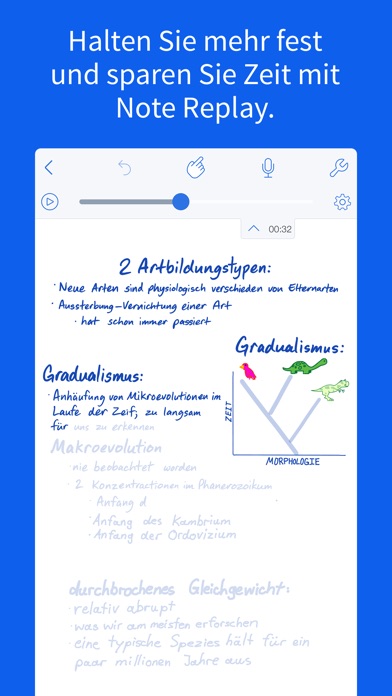 Halten Sie mehr fest
und sparen Sie Zeit mit
Note Replay.
00:32
2 Artbildungstypen:
· Neue Arten sind physiologisch verschieden von Elternarten
· Aussterbung-Vernichtung einer Art
· hat schon immer passiert
Gradualismus:
· Anhäufung von Mikroevolutionen im
Laufe der Zeit; zu langsam
für uns zu erkennen
Gradualismus:
ZEIT
MORPHOLOGIE
Makroevolution
· nie beobachtet worden
· 2 Konzentractionen im Phanerozoikum
· Anfang d
· Anfang des Kambrium
· Anfang der Ordovizium
durchbrochenes Gleichgewicht:
· relativ abrupt
· was wir am meisten erforschen
· eine typische Spezies hält für ein
paar millionen Jahre aus